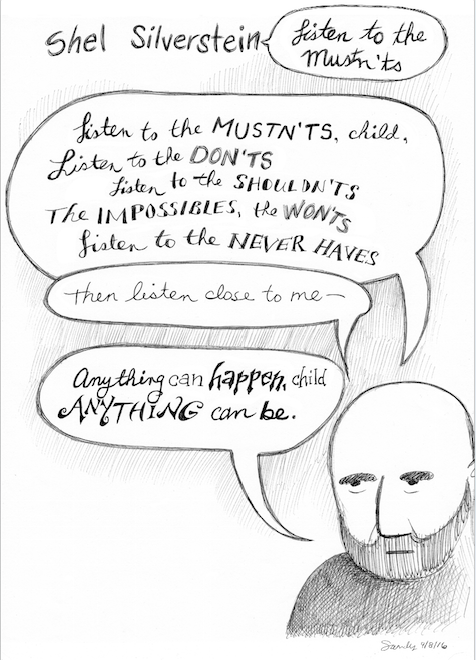 Shel Silverstein
Listen to the
Mustn'ts
Listen to the MUSTN'TS, child,
Listen to the DON'TS
Listen to the SHOULDN'TS
The IMPOSSIBLES, the WON'TS
Listen to the NEVER HAVES
Then listen close to me—
Anything can happen, child
ANYTHING can be.
9/8/16